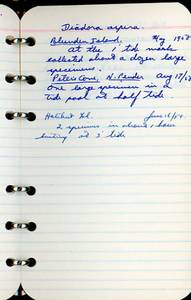 Diadora aspera.
Blunden Island. May 1968
At the 1' tide mark
collected about a dozen large
specimens.
Peter's Cove, N. Pender Aug 17/68
One large specimen in a
tide pool at half tide.
June 16/
2 specimens in an hour
hunting at 3' tide